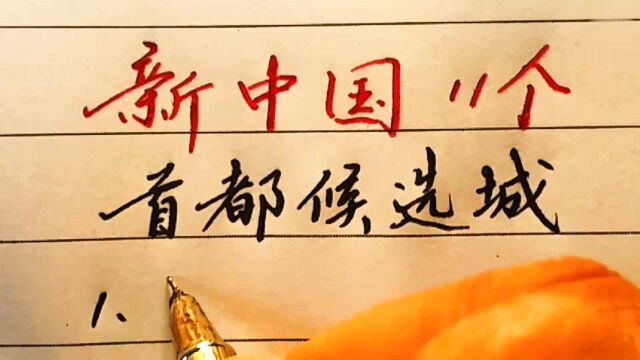 新中国11个
首都候选城
1、